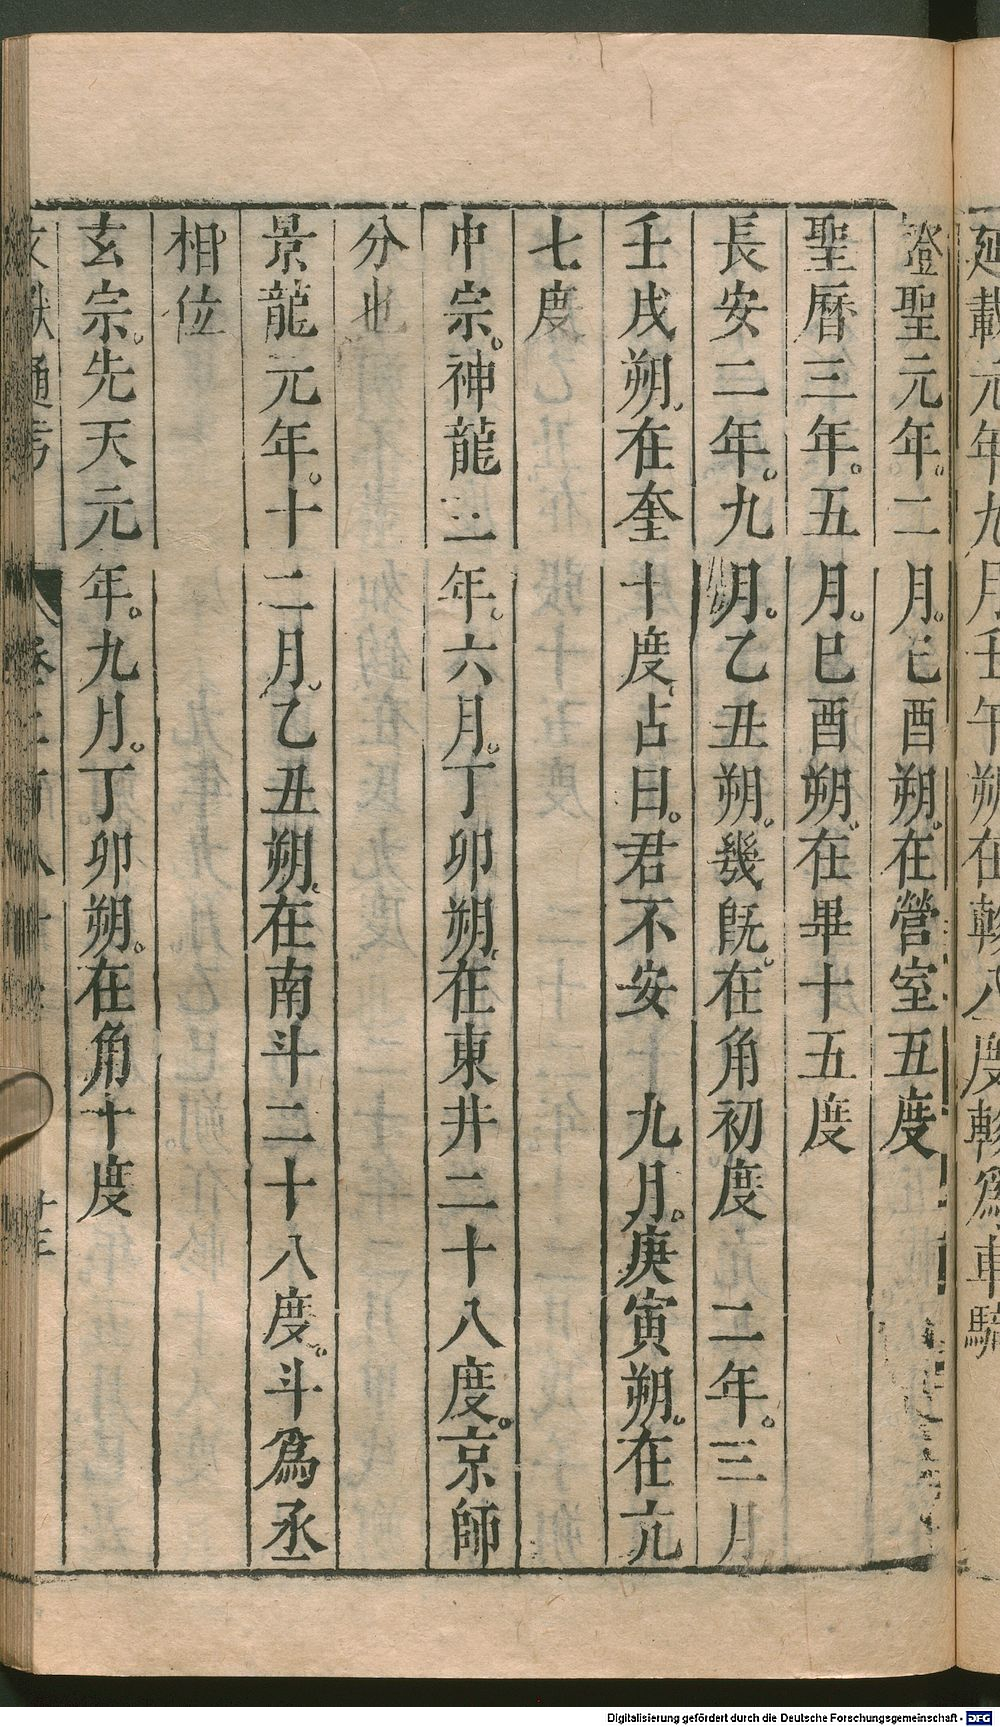 延載元年九月壬午朔在軫八度軫爲車騎
證聖元年。二月。己酉朔。在營室五度
聖曆三年。五月。己酉朔。在畢十五度
長安二年。九月。乙丑朔。幾旣。在角初度　二年。三月
壬戌朔。在奎十度。占曰。君不安　九月。庚寅朔。在亢
七度
中宗。神龍三年。六月。丁卯朔。在東井二十八度。京師
分也
景龍元年。十二月。乙丑朔。在南斗二十八度。斗爲丞
相位
玄宗。先天元年。九月。丁卯朔。在角十度
文獻通考　卷二百八十三
Digitalisierung gefördert durch die Deutsche Forschungsgemeinschaft - DFG